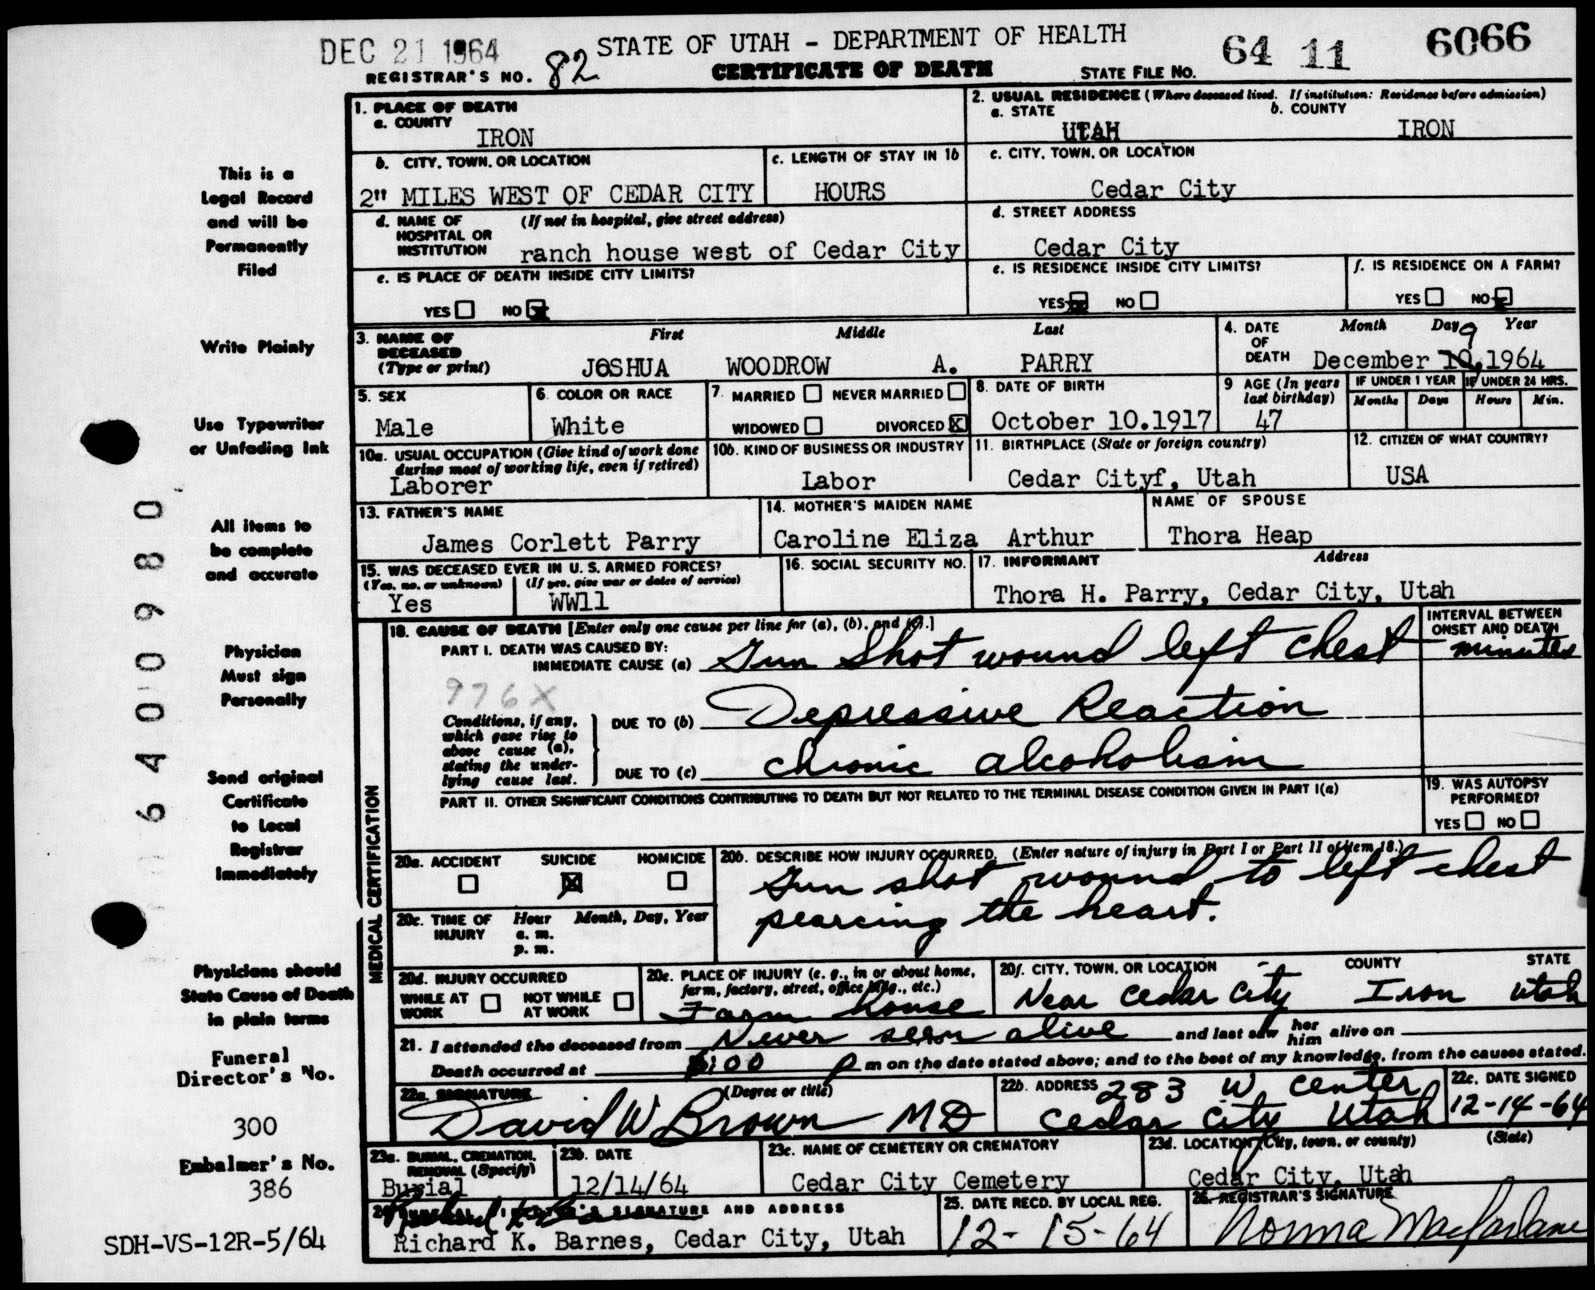 DEC 21 1964
STATE OF UTAH - DEPARTMENT OF HEALTH
64 11 6066
REGISTRAR'S NO. 82
CERTIFICATE OF DEATH
STATE FILE NO.
1. PLACE OF DEATH
a. COUNTY
IRON
2. USUAL RESIDENCE (Where deceased lived. If institution: Residence before admission)
a. STATE
UTAH
b. COUNTY
IRON
b. CITY, TOWN, OR LOCATION
2" MILES WEST OF CEDAR CITY
c. LENGTH OF STAY IN 1b
HOURS
c. CITY, TOWN, OR LOCATION
Cedar City
d. NAME OF HOSPITAL OR INSTITUTION
(If not in hospital, give street address)
ranch house west of Cedar City
d. STREET ADDRESS
Cedar City
e. IS PLACE OF DEATH INSIDE CITY LIMITS?
YES NO X
e. IS RESIDENCE INSIDE CITY LIMITS?
YES X NO
f. IS RESIDENCE ON A FARM?
YES NO X
3. NAME OF DECEASED (Type or print)
First Middle Last
JOSHUA WOODROW A. PARRY
4. DATE OF DEATH
Month Day Year
9
December 10, 1964
5. SEX
Male
6. COLOR OR RACE
White
7. MARRIED NEVER MARRIED
WIDOWED DIVORCED X
8. DATE OF BIRTH
October 10.1917
9 AGE (In years last birthday)
47
IF UNDER 1 YEAR
Months Days
IF UNDER 24 HRS.
Hours Min.
10a. USUAL OCCUPATION (Give kind of work done during most of working life, even if retired)
Laborer
10b. KIND OF BUSINESS OR INDUSTRY
Labor
11. BIRTHPLACE (State or foreign country)
Cedar Cityf, Utah
12. CITIZEN OF WHAT COUNTRY?
USA
13. FATHER'S NAME
James Corlett Parry
14. MOTHER'S MAIDEN NAME
Caroline Eliza Arthur
NAME OF SPOUSE
Thora Heap
15. WAS DECEASED EVER IN U. S. ARMED FORCES?
(Yes, no, or unknown) (If yes, give war or dates of service)
Yes WW11
16. SOCIAL SECURITY NO.
17. INFORMANT Address
Thora H. Parry, Cedar City, Utah
MEDICAL CERTIFICATION
18. CAUSE OF DEATH [Enter only one cause per line for (a), (b), and (c).]
INTERVAL BETWEEN ONSET AND DEATH
PART I. DEATH WAS CAUSED BY:
IMMEDIATE CAUSE (a) Gun Shot wound left chest minutes
976X
Conditions, if any, which gave rise to above cause (a), stating the underlying cause last.
DUE TO (b) Depressive Reaction
DUE TO (c) chronic alcoholism
PART II. OTHER SIGNIFICANT CONDITIONS CONTRIBUTING TO DEATH BUT NOT RELATED TO THE TERMINAL DISEASE CONDITION GIVEN IN PART I(a)
19. WAS AUTOPSY PERFORMED?
YES NO
20a. ACCIDENT SUICIDE HOMICIDE
X
20b. DESCRIBE HOW INJURY OCCURRED. (Enter nature of injury in Part I or Part II of item 18.)
Gun shot wound to left chest
pearcing the heart.
20c. TIME OF INJURY
Hour Month, Day, Year
a. m.
p. m.
20d. INJURY OCCURRED
WHILE AT WORK NOT WHILE AT WORK
20e. PLACE OF INJURY (e. g., in or about home, farm, factory, street, office bldg., etc.)
Farm house
20f. CITY, TOWN, OR LOCATION COUNTY STATE
Near Cedar City Iron Utah
21. I attended the deceased from Never seen alive and last saw her him alive on
Death occurred at 6:00 P m on the date stated above; and to the best of my knowledge, from the causes stated.
22a. SIGNATURE (Degree or title)
David W Brown MD
22b. ADDRESS 283 W. Center
Cedar City Utah
22c. DATE SIGNED
12-14-64
23a. BURIAL, CREMATION, REMOVAL (Specify)
Burial
23b. DATE
12/14/64
23c. NAME OF CEMETERY OR CREMATORY
Cedar City Cemetery
23d. LOCATION (City, town, or county) (State)
Cedar City, Utah
SIGNATURE AND ADDRESS
Richard K. Barnes, Cedar City, Utah
25. DATE RECD. BY LOCAL REG.
12-15-64
26. REGISTRAR'S SIGNATURE
Norma Macfarlane
This is a
Legal Record
and will be
Permanently
Filed
Write Plainly
Use Typewriter
or Unfading Ink
All items to
be complete
and accurate
Physician
Must sign
Personally
Send original
Certificate
to Local
Registrar
Immediately
Physicians should
State Cause of Death
in plain terms
Funeral
Director's No.
300
Embalmer's No.
386
SDH-VS-12R-5/64
6400980